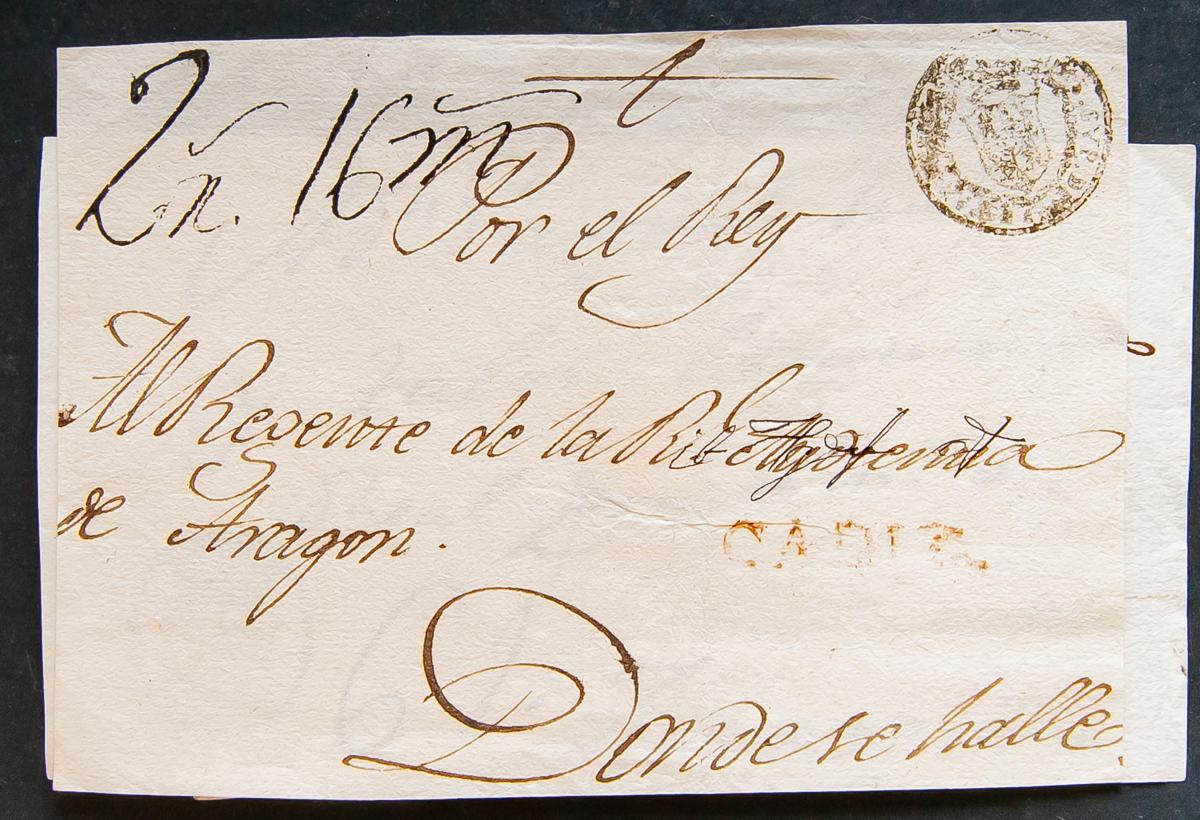 2 r. 16 m
Por el Rey
Al Regente de la
de Aragon.
CADIZ.
Donde se halle